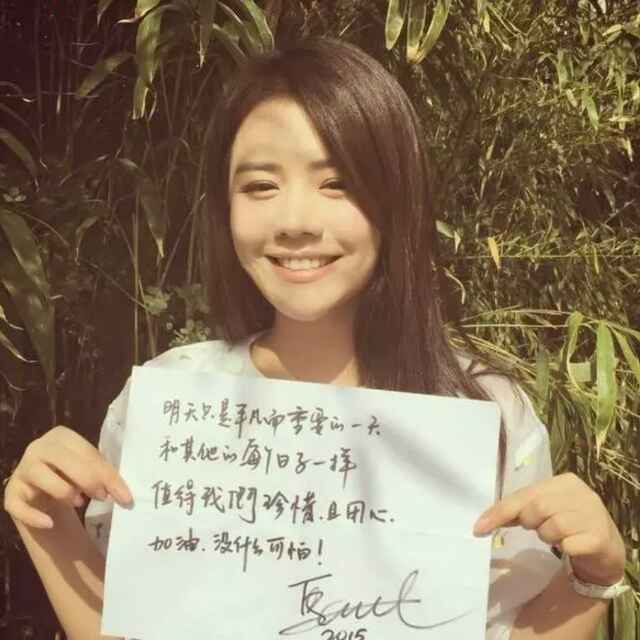 明天只是平凡而重要的一天
和其他的每个日子一样
值得我们珍惜.且用心.
加油.没什么可怕!
2015